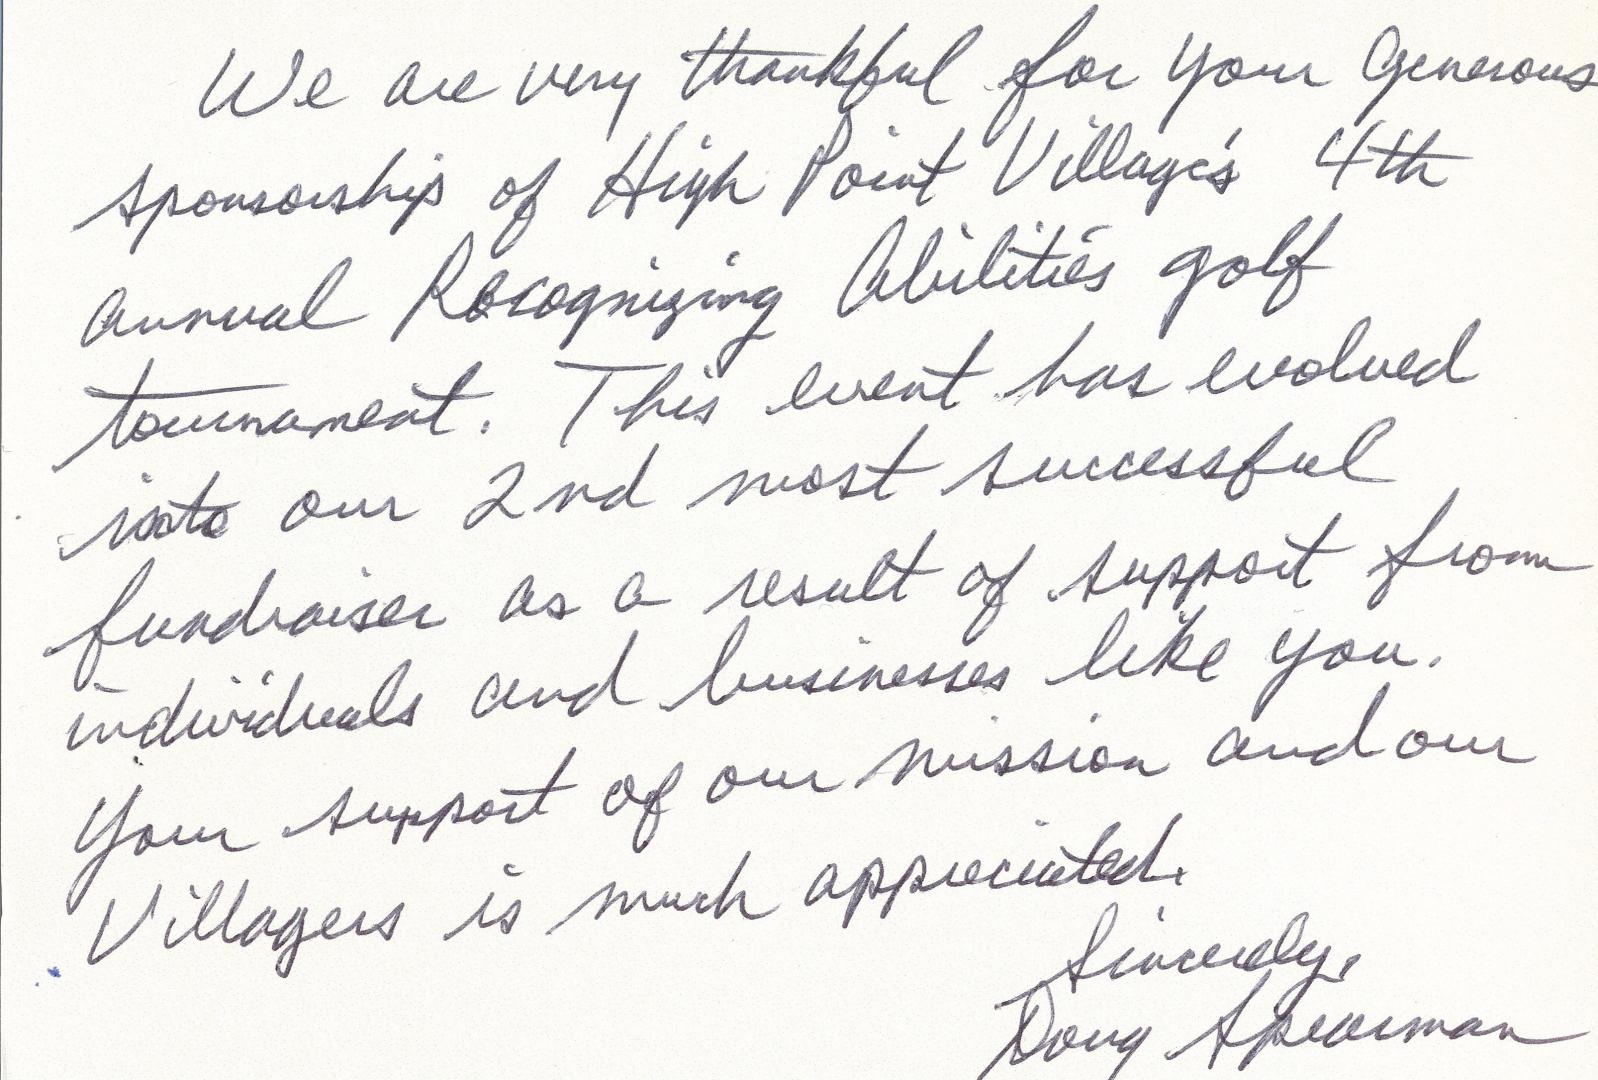 We are very thankful for your generous
sponsorship of High Point Village's 4th
annual Recognizing Abilities golf
tournament. This event has evolved
into our 2nd most successful
fundraiser as a result of support from
individuals and businesses like you.
Your support of our mission and our
Villagers is much appreciated.
Sincerely,
Doug Spearman